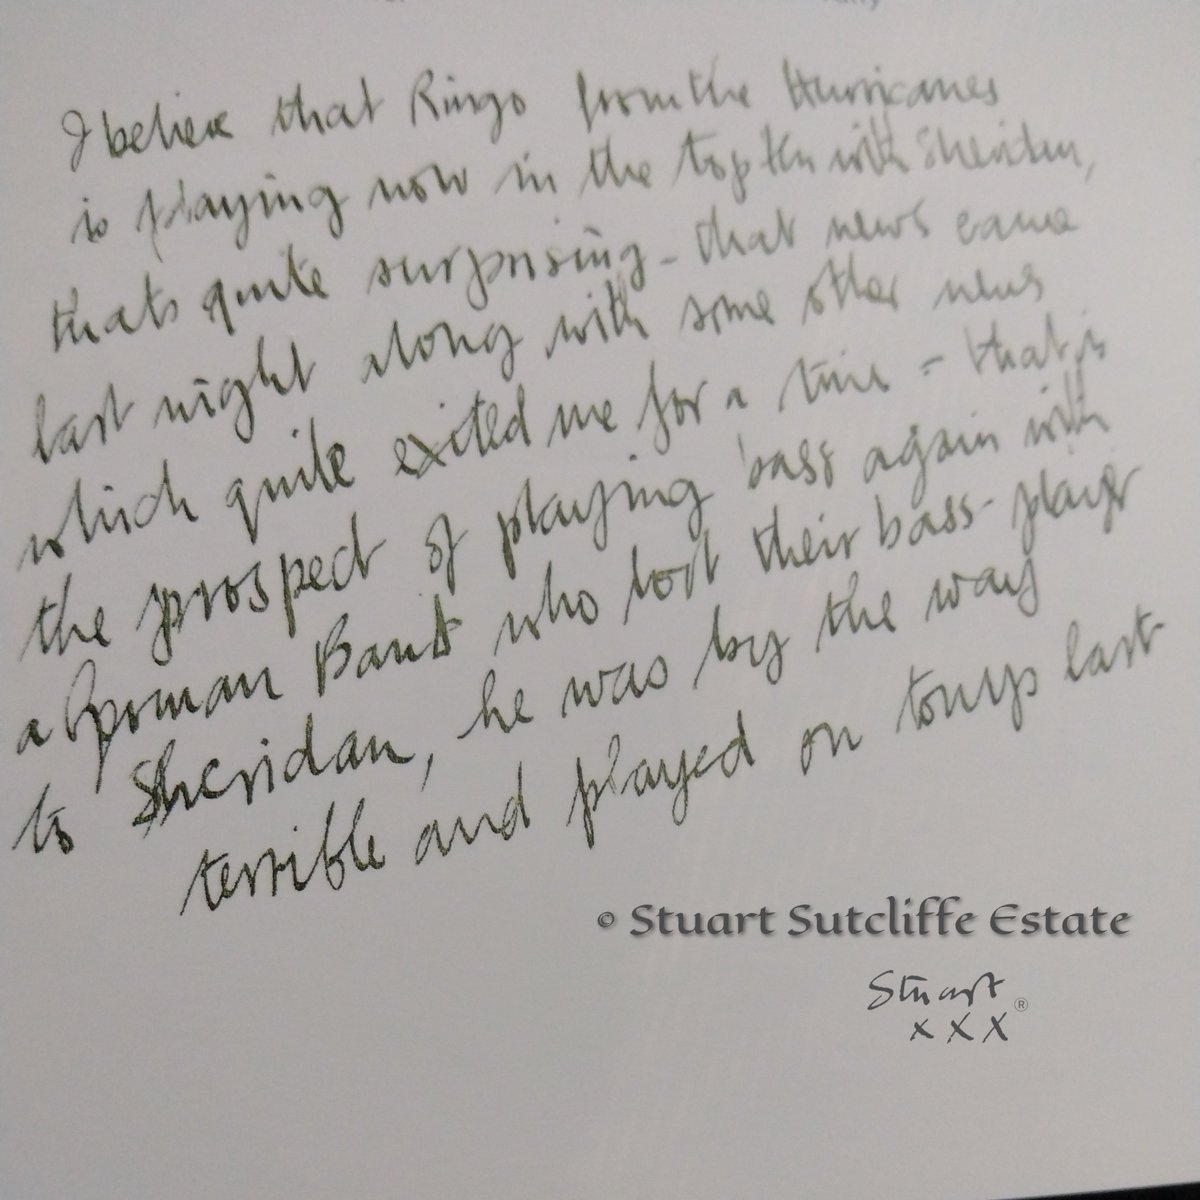 I believe that Ringo from the Hurricanes
is playing now in the top ten with Sheridan,
thats quite surprising - that news came
last night along with some other news
which quite exited me for a time - that is
the prospect of playing bass again with
a German Band who lost their bass-player
to Sheridan, he was by the way
terrible and played on tonys last
© Stuart Sutcliffe Estate
Stuart ®
x x x